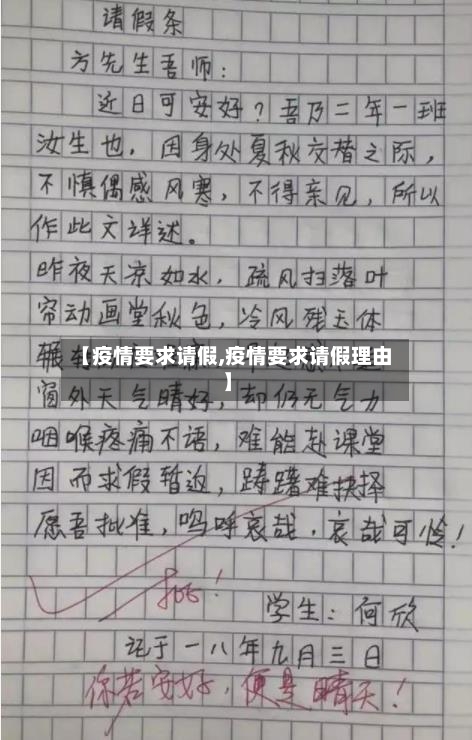 请假条
方先生吾师：
近日可安好？吾乃二年一班
汝生也，因身处夏秋交替之际，
不慎偶感风寒，不得亲见，所以
作此文详述。
昨夜天凉如水，疏风扫落叶
帘动画堂秋色，冷风残玉体
辗
【疫情要求请假,疫情要求请假理由
】
窗外天气晴好，却仍无气力
咽喉疼痛不语，难能赴课堂
因而求假暂返，踌躇难抉择
愿吾批准，呜呼哀哉，哀哉可怜！
批！
学生：何欣
记于一八年九月三日
你若安好，便是晴天！